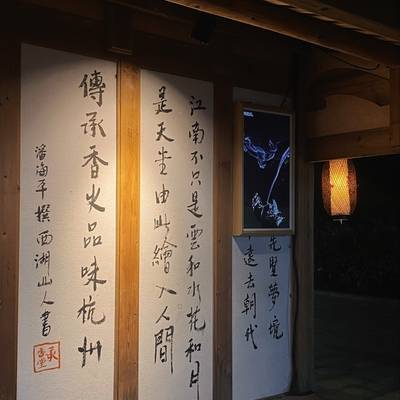 夢境
遠去朝代
江南不只是雲和水花和月
是天堂由此繪入人間
傳承香火品味杭州
潘海平撰西湖山人書